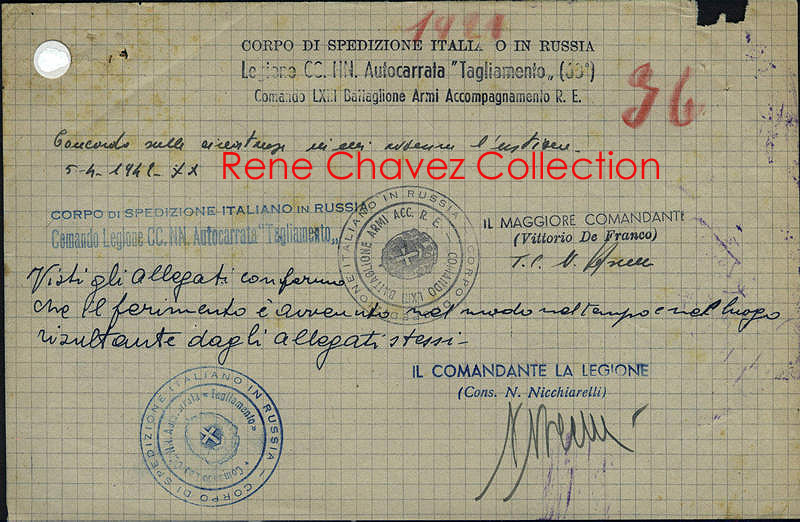 1921
CORPO DI SPEDIZIONE ITALIANO IN RUSSIA
Legione CC. NN. Autocarrata "Tagliamento„ (63ª)
Comando LXIII Battaglione Armi Accompagnamento R. E.
36
Concordo sulle circostanze in cui avvenne
5-4-1942-XX
Rene Chavez Collection
CORPO DI SPEDIZIONE ITALIANO IN RUSSIA
Comando Legione CC. NN. Autocarrata "Tagliamento„
CORPO DI SPEDIZIONE ITALIANO IN RUSSIA
COMANDO LXIII BATTAGLIONE ARMI ACC. R. E.
IL MAGGIORE COMANDANTE
(Vittorio De Franco)
Visti gli allegati confermo
che il ferimento è avvenuto nel modo nel tempo e nel luogo
risultante dagli allegati stessi-
IL COMANDANTE LA LEGIONE
(Cons. N. Nicchiarelli)
CORPO DI SPEDIZIONE ITALIANO IN RUSSIA
Comando Leg. CC. NN. Autocarrata "Tagliamento"